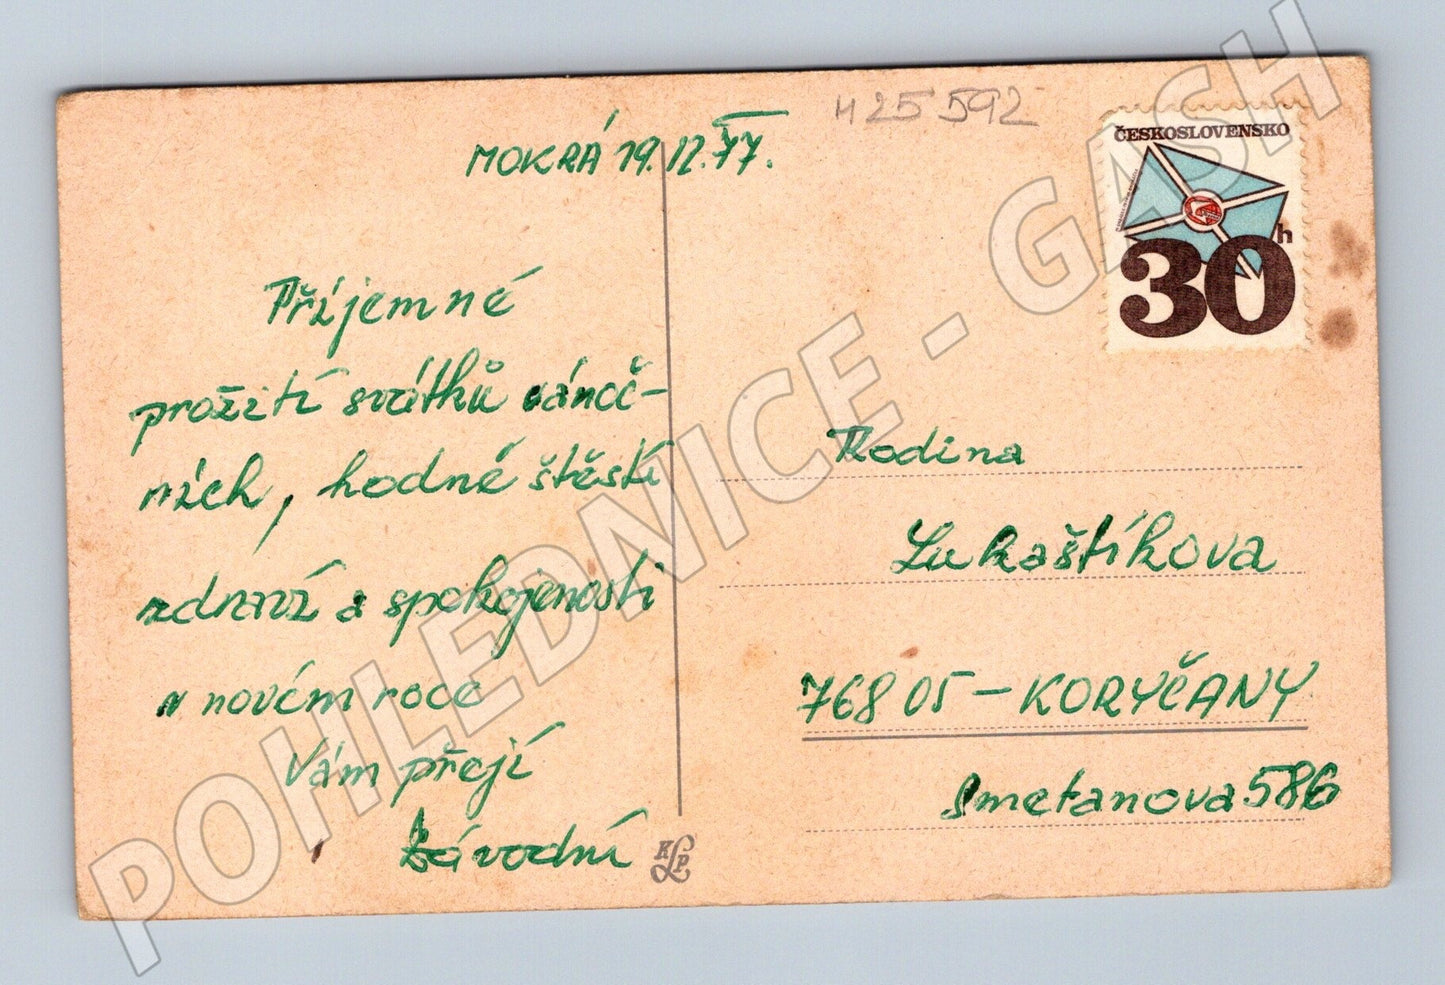 MOKRÁ 19.12.77.
Příjemné
prožití svátků vánoč-
ních, hodně štěstí
zdraví a spokojenosti
v novém roce
Vám přejí
Závodní
KLP
H25592
ČESKOSLOVENSKO
30h
Rodina
Lukaštíkova
768 05 - KORYČANY
Smetanova 586
POHLEDNICE - GASH